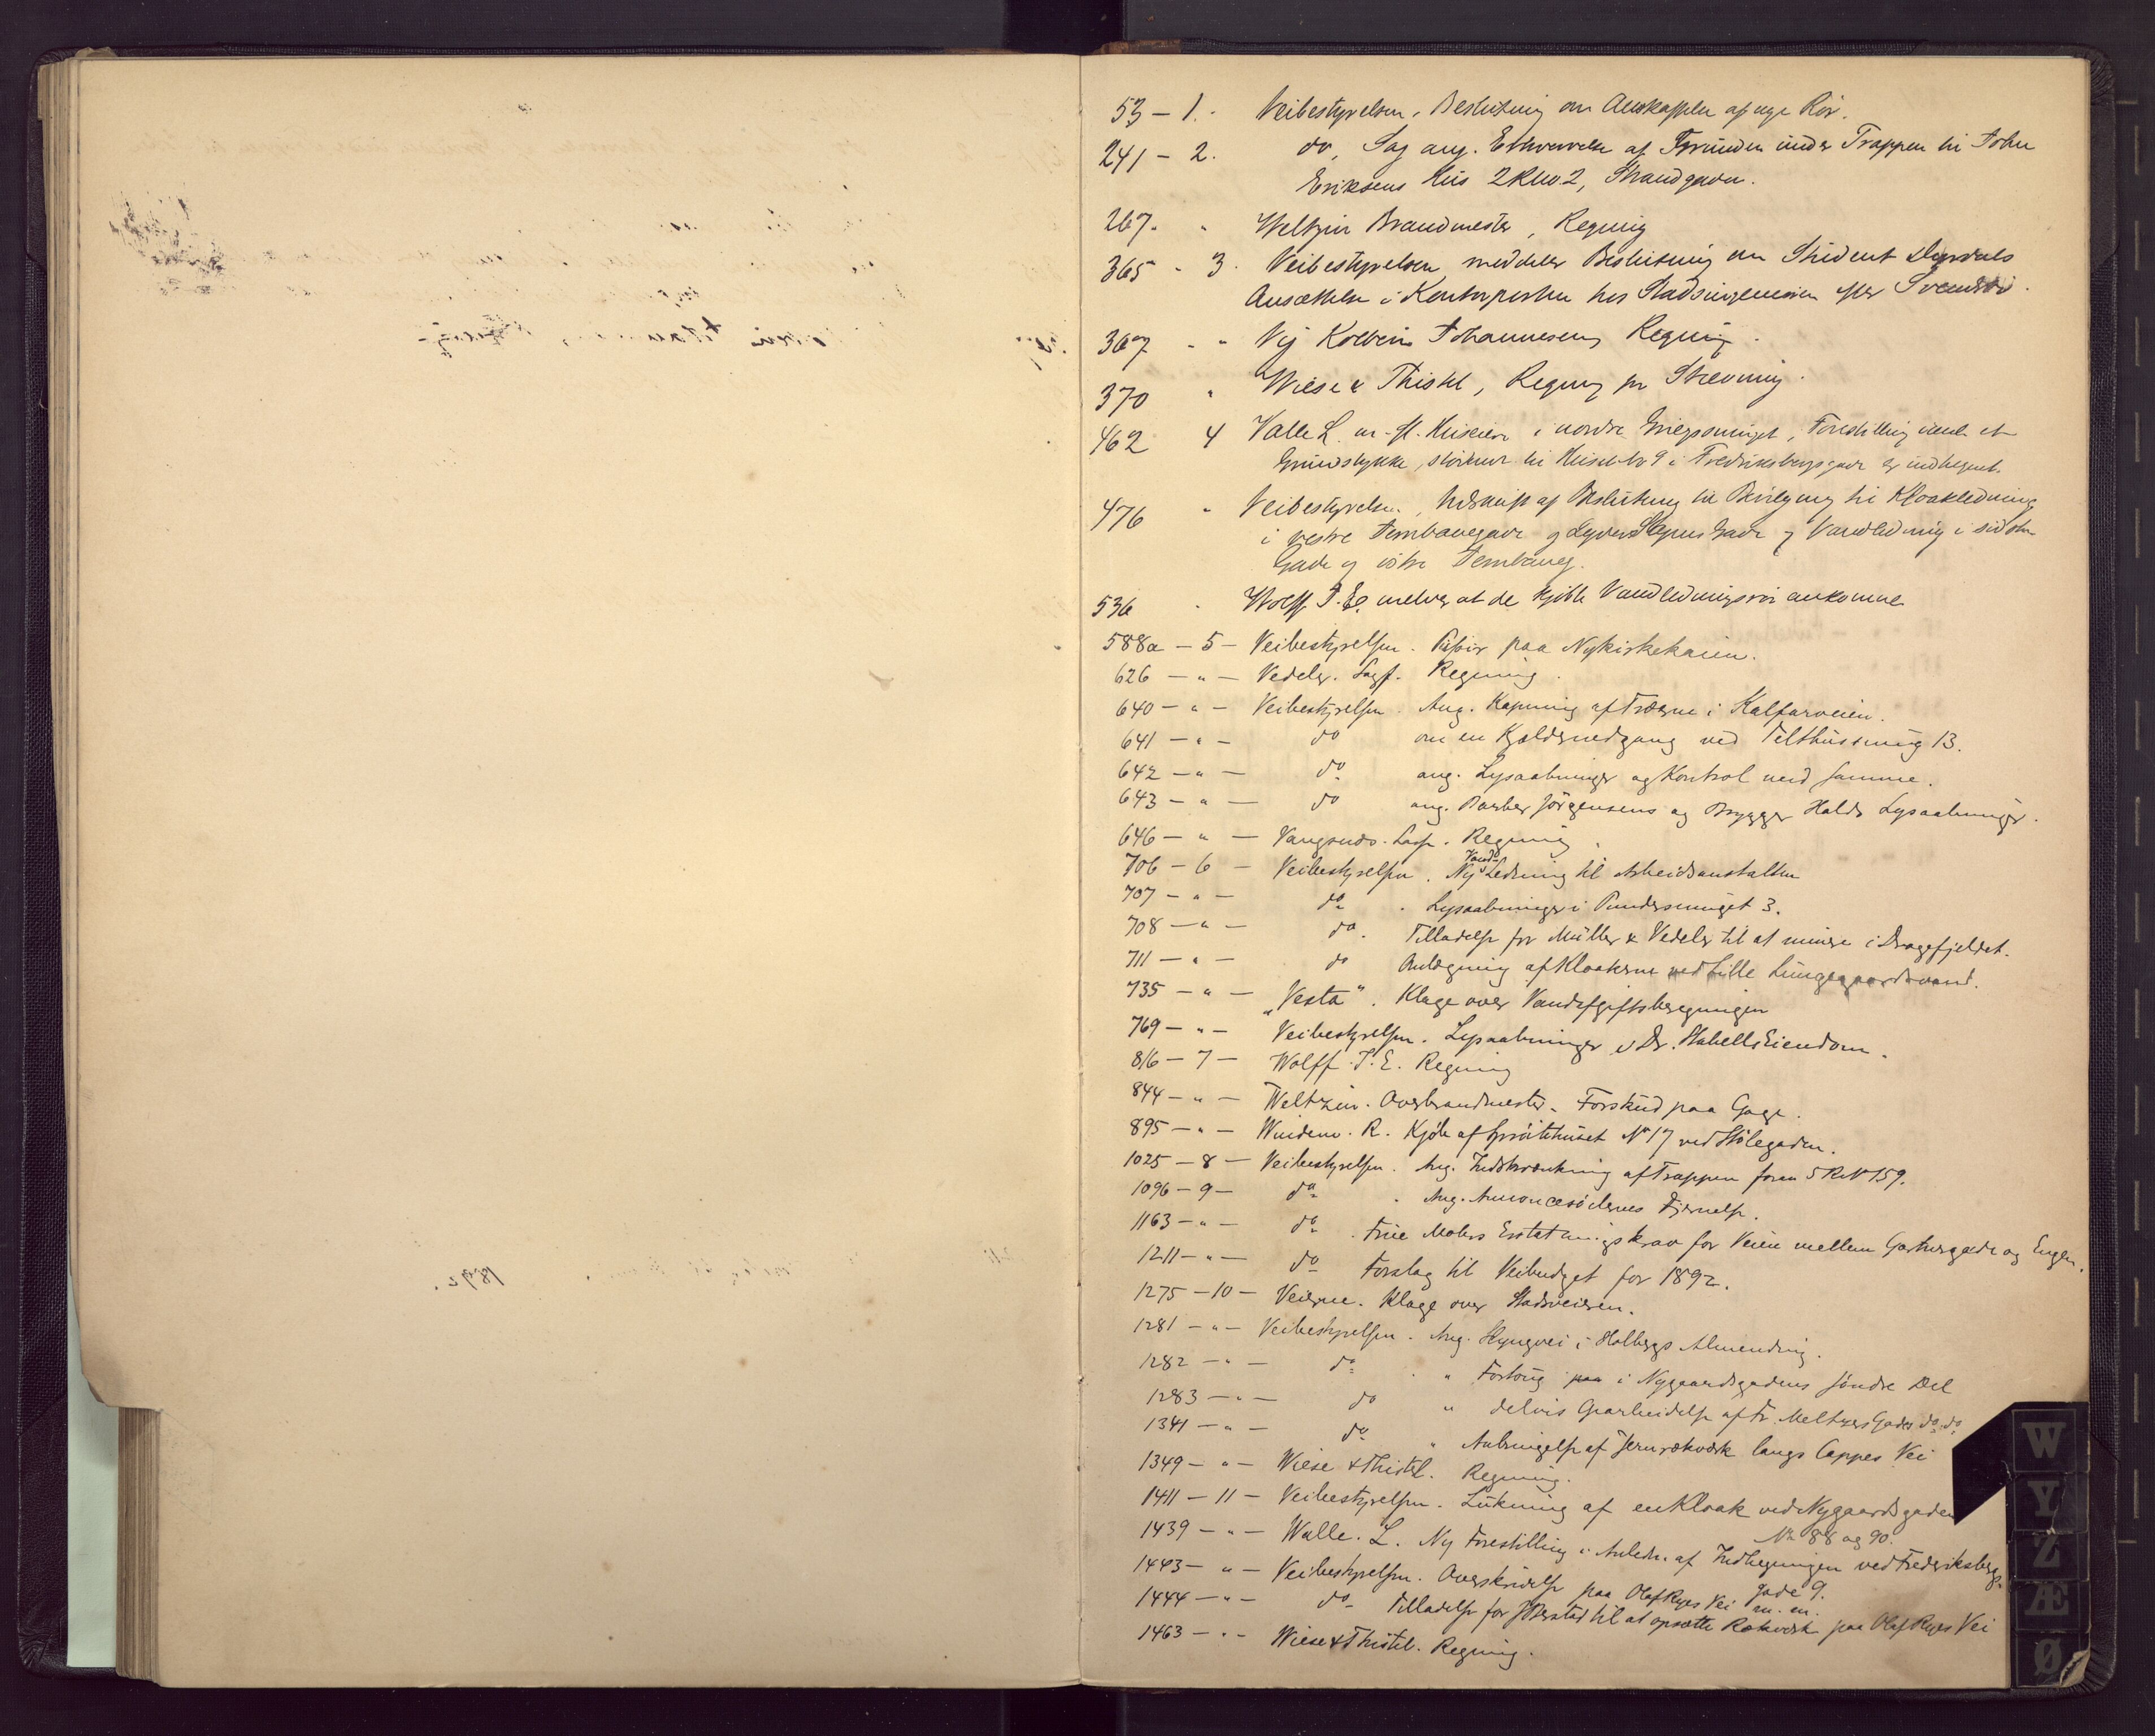 53 - 1. Veibestyrelsen, Beslutning om Anskaffelse af nye Rör.
241 - 2. do, Sag ang. Erhvervelse af Grunden under Trappen til John
Eriksens Hus 2 R No. 2, Strandgaden.
267. " Weltzin Brandmester, Regning
365 - 3. Veibestyrelsen meddeler Beslutning om Student Dyrdals
Ansættelse i Kontorposten hos Stadsingeniøren efter Svendsen.
367 - " Vij Kolbein Johannesens Regning.
370 " Wiese & Thistel, Regning for Stævning.
462 4 Valle L. m. fl. Huseiere i nordre, Forestilling imod at
Grundstykke, stödende til Huset No 9 i Fredriksbergsgade er indhegnet.
476 " Veibestyrelsen, Udskrift af Beslutning til Bevilgning til Kloakledning
i vestre Jernbanegade og Gade og Vandledning i sidste
Gade og östre Jernbaneg.
536 " Wolff J. E. melder at de kjöbte Vandledningsrör ankomne
588a - 5 - Veibestyrelsen. Pissoir paa Nykirkekaien.
626 - " - Vedeler. Sagf. Regning.
640 - " - Veibestyrelsen. Ang. Kapning af Træerne i Kalfarveien.
641 - " - do om en Kjeldernedgang ved Telthussmug 13.
642 - " - do ang. Lysaabninger og Kontrol med samme.
643 - " - do ang. Barber Jörgensens og Brygger Holds Lysaabninger.
646 - " - Vangsnæs. Lars. Regning.
706 - 6 - Veibestyrelsen. Ny Vand-Ledning til Arbeidsanstalten
707 - " - do . Lysaabninger i Pundersmuget 3.
708 - " - do. Tilladelse for Müller & Vedeler til at minere i Dragefjeldet.
711 - " - do Anlægning af Kloakerne ved Lille Lungegaardsvand.
735 - " - „Vesta". Klage over Vandafgiftsberegningen
769 - " - Veibestyrelsen. Lysaabninger v Dr. Stabells Eiendom.
816 - 7 - Wolff. J. E. Regning
844 - " - Weltzin. Overbrandmester. Forskud paa Gage.
895 - " - Windem. R. Kjöb af Spröitehuset No 17 ved Hölegaden.
1025 - 8 - Veibestyrelsen. Ang. Indskrænkning af Trappen foran 5 R No 159.
1096 - 9 - do . Ang. Annoncesöilernes Fjernelse.
1163 - " - do . Frue Mohrs Erstatningskrav for Veien mellem Gartnergade og Engen.
1211 - " - do Forslag til Veibudget for 1892.
1275 - 10 - Veierne. Klage over Stadsveieren.
1281 - " - Veibestyrelsen. Ang. Slyngvei i Holbergs Almending.
1282 - " - do . " Fortoug i Nygaardsgadens söndre Del
1283 - " - do " delvis Oparbeidelse af Fr. Meltzers Gades do. do
1341 - " - do " Anbringelse af Jernrækværk langs Cappes Vei
1349 - " - Wiese & Thistel. Regning.
1411 - 11 - Veibestyrelsen. Lukning af en Kloak ved Nygaardsgaden
No 88 og 90.
1439 - " - Walle. L. Ny Forestilling i Anledn. af Indhegningen ved Frederiksbergs-
gade 9.
1443 - " - Veibestyrelsen. Overskridelse paa Olaf Ryes Vei m. m.
1444 - " - do Tilladelse for til at opsætte Rækværk paa Olaf Ryes Vei
1463 - " - Wiese & Thistel. Regning.
1892.
W
Y
Z
Æ
Ø